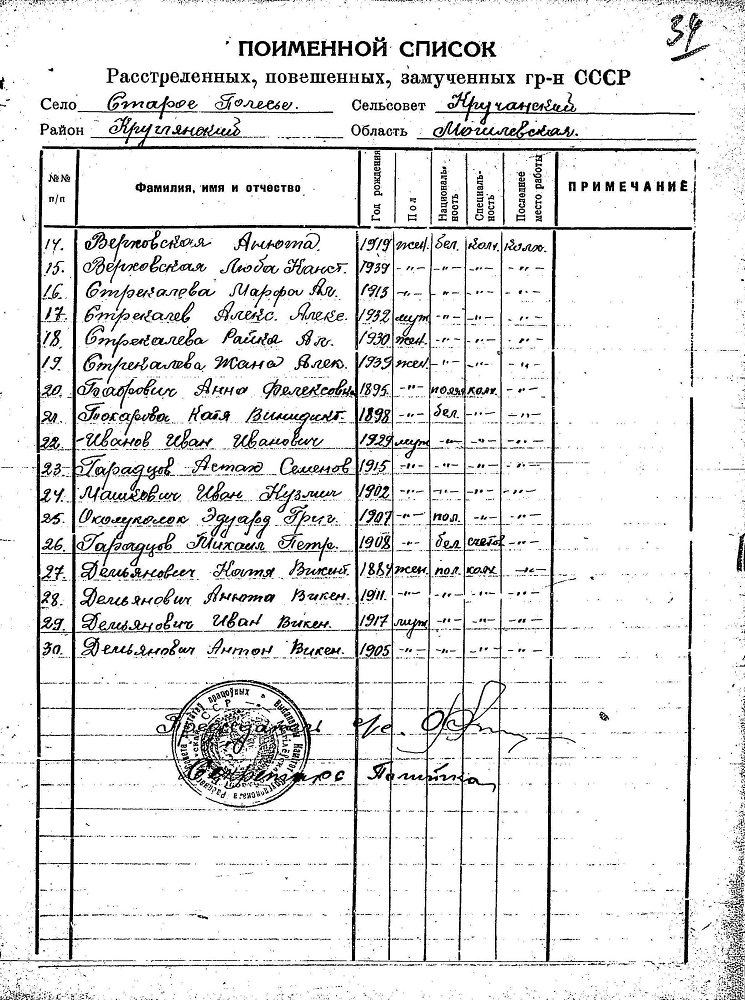 34
ПОИМЕННОЙ СПИСОК
Расстреленных, повешенных, замученных гр-н СССР
Село Старое Полесье. Сельсовет Кручанский
Район Круглянский Область Могилевская.
№№ п/п Фамилия, имя и отчество Год рождения Пол Националь-ность Специаль-ность Последнее место работы ПРИМЕЧАНИЕ
14. Верховская Анюта. 1919 жен. бел. колх. колх.
15. Верховская Люба Канст. 1939 -"- -"- -"- -"-
16 Стрекалева Марфа Ал. 1913 -"- -"- -"- -"-
17 Стрекалев Алекс. Алекс. 1932 муж -"- -"- -"-
18 Стрекалева Райка Ал. 1930 жен. -"- -"- -"-
19. Стрекалева Жана Алек. 1939 жен. -"- -"- -"-
20. Бабрович Анна Фелексовн 1895 -"- колх -"-
21. Токарева Катя 1898 -"- бел. -"- -"-
22. Иванов Иван Иванович 1929 муж -"- -"- -"-
23 Гарадцов Астап Семенов 1915 -"- -"- -"- -"-
24. Машкович Иван Кузмич 1902 -"- -"- -"- -"-
25. Околуколок Эдуард Григ. 1907 -"- пол. -"- -"-
26. Гарадцов Михаил Петр. 1908 -"- бел счетов -"-
27. Демьянович Катя Викент 1884 жен. пол. колх -"-
28. Демьянович Анюта Викен. 1911. -"- -"- -"- -"-
29. Демьянович Иван Викен. 1917 муж -"- -"- -"-
30. Демьянович Антон Викен. 1905 -"- -"- -"- -"-
Председатель с/с.
Секретарь